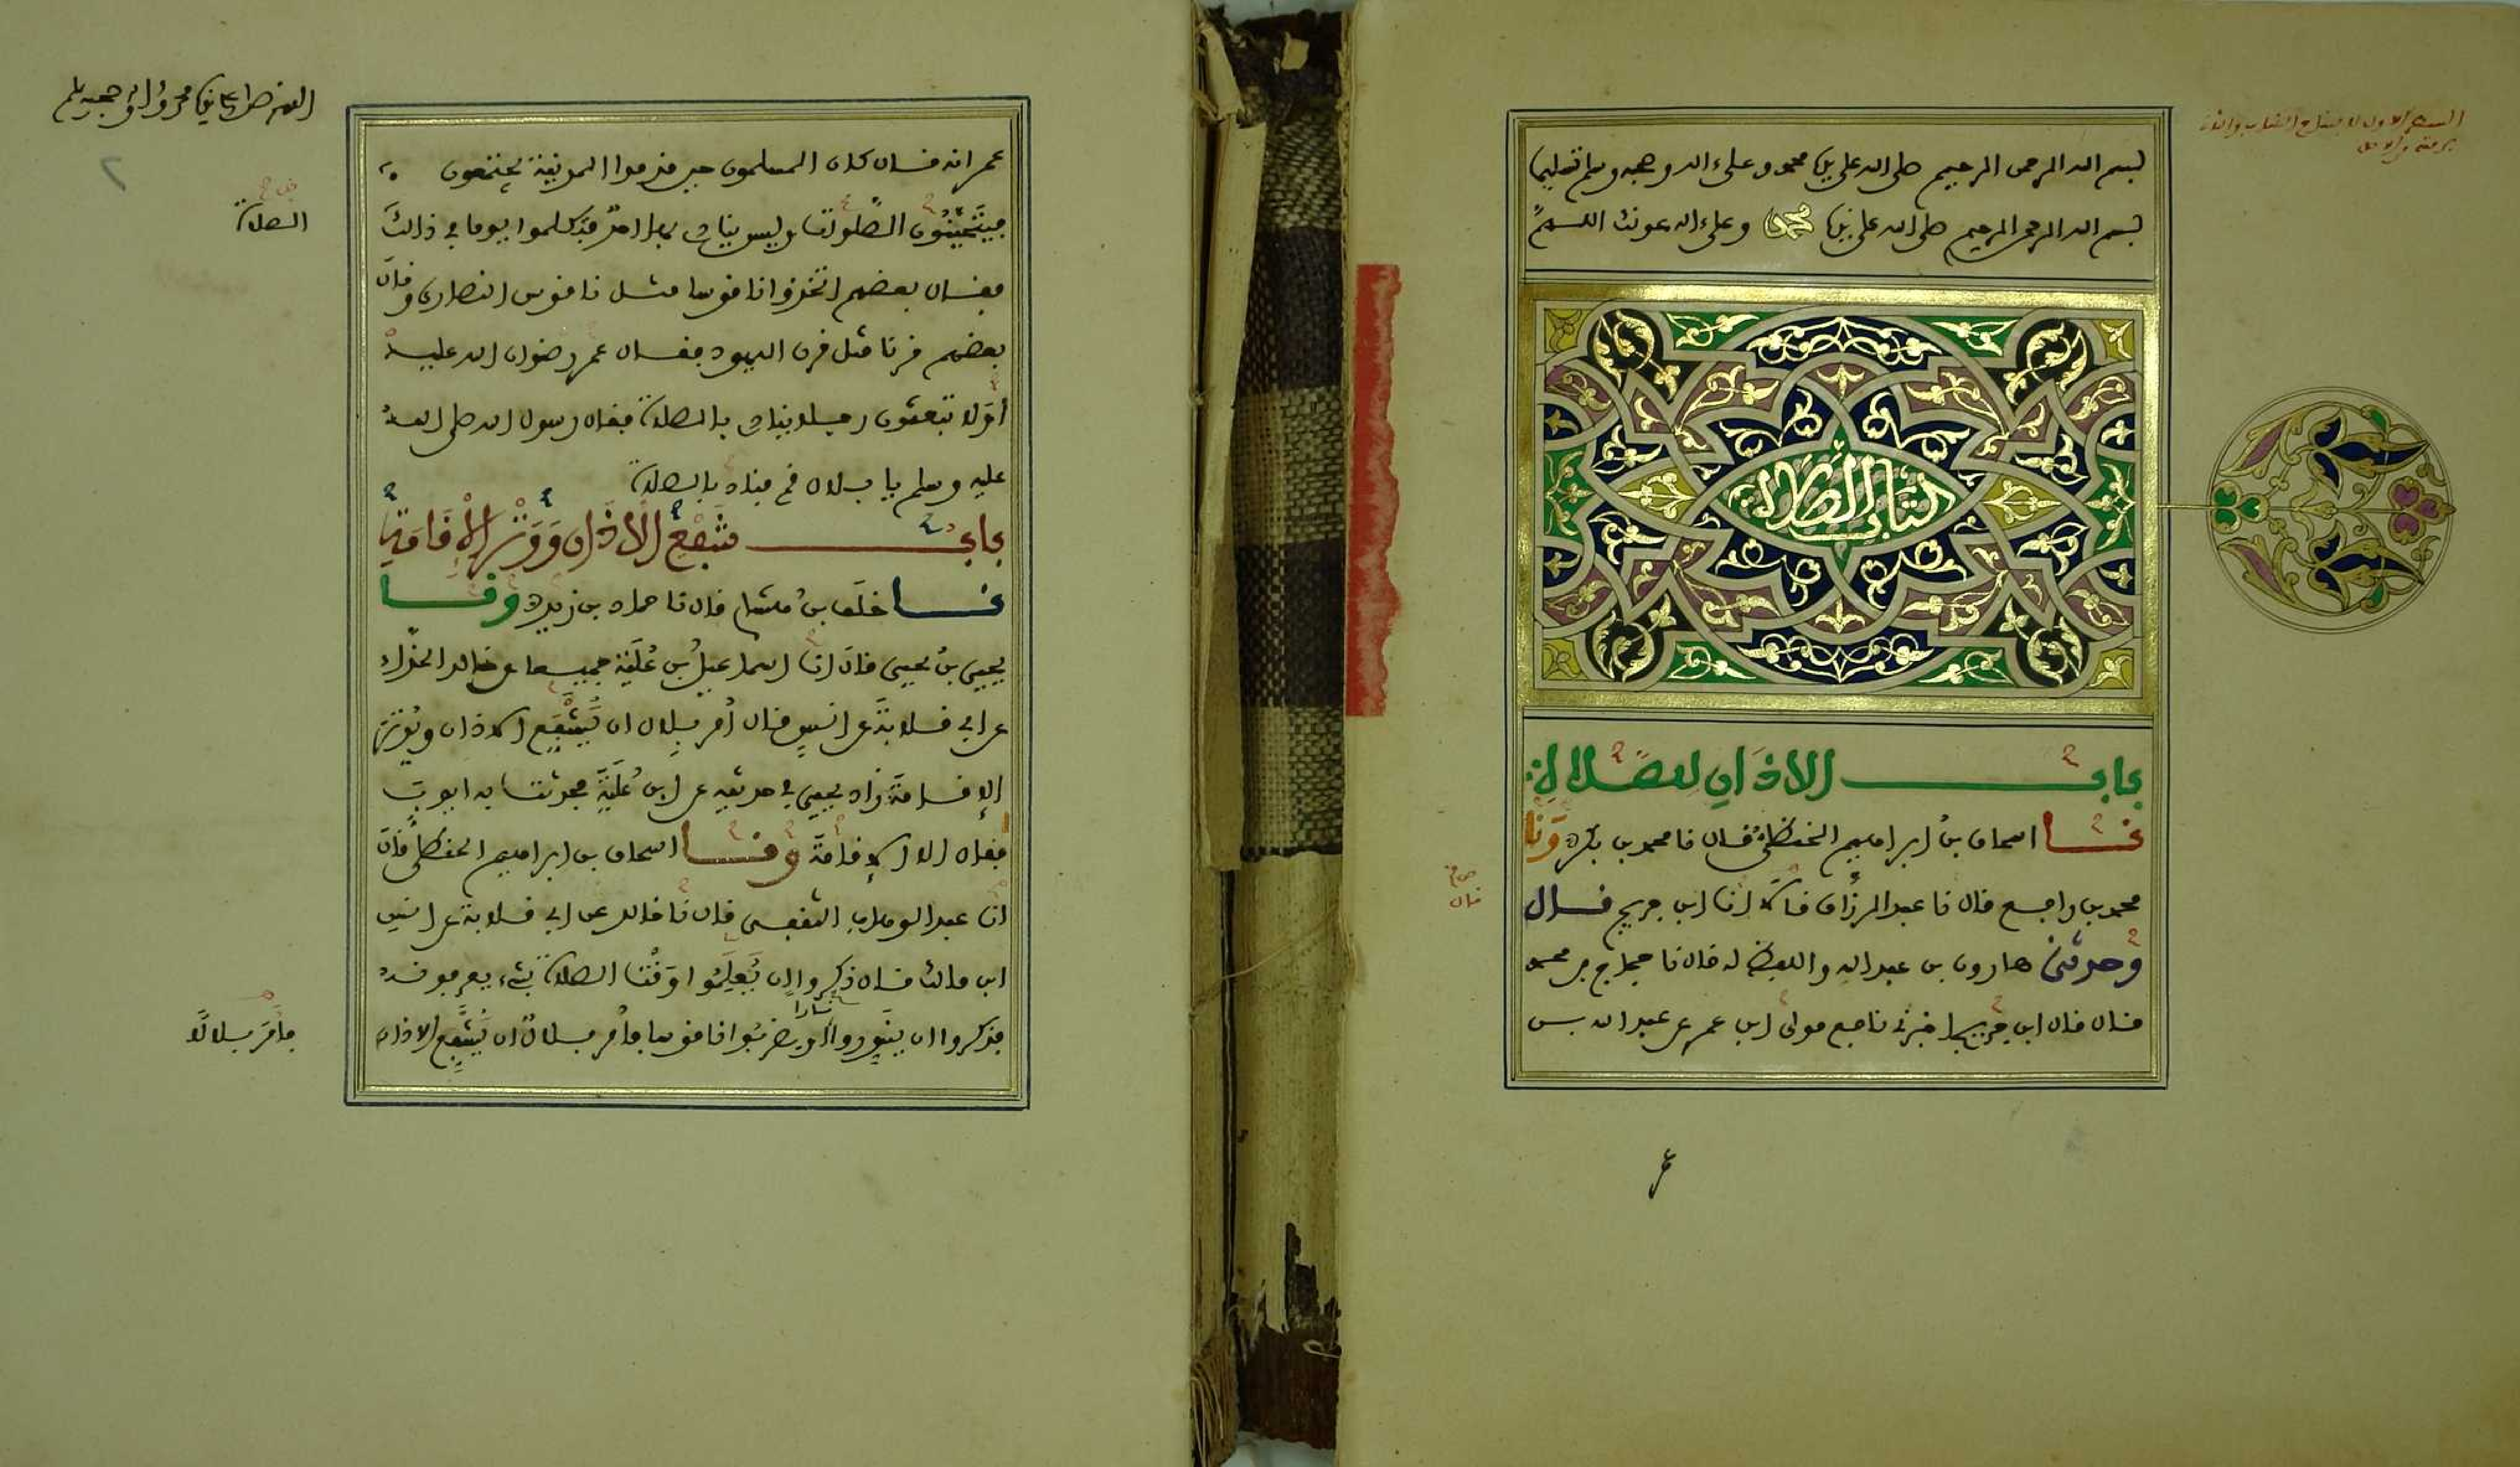 بسم الله الرحمن الرحيم صلى الله على نبينا محمد وعلى ءاله وصحبه وسلم تسليما
بسم الله الرحمن الرحيم صلى الله على نبينا محمد وعلى ءاله عونك اللهم
كتاب الصلاة
باب الاذان للصلاة
نا اسحاق بن ابراهيم الحنظلي قال نا محمد بن بكر ح ونا
محمد بن رافع قال نا عبد الرزاق قالا انا ابن جريج قال
وحدثني هارون بن عبد الله واللفظ له قال نا حجاج بن محمد
قال قال ابن جريج اخبرني نافع مولى ابن عمر عن عبد الله بن
عمر انه قال كان المسلمون حين قدموا المدينة يجتمعون
فيتحينون الصلوات وليس ينادي بها احد فتكلموا يوما في ذالك
فقال بعضهم اتخذوا ناقوسا مثل ناقوس النصارى وقال
بعضهم قرنا مثل قرن اليهود فقال عمر رضوان الله عليه
أولا تبعثون رجلا ينادي بالصلاة فقال رسول الله صلى الله
عليه وسلم يا بلال قم فناد بالصلاة
باب شفع الأذان ووتر الإقامة
نا خلف بن هشام قال نا حماد بن زيد ح ونا
يحيى بن يحيى قال انا اسماعيل بن علية جميعا عن خالد الحذاء
عن ابي قلابة عن انس قال أمر بلال ان يشفع الاذان ويوتر
الإقامة زاد يحيى في حديثه عن ابن علية فحدثت به ايوب
فقال الا الإقامة ونا اسحاق بن ابراهيم الحنظلي قال
انا عبد الوهاب الثقفي قال نا خالد عن ابي قلابة عن انس
ابن مالك قال ذكروا ان يعلموا وقت الصلاة بشيء يعرفونه
فذكروا ان ينوروا نارا او يضربوا ناقوسا فأمر بلال ان يشفع الاذان
الصلاة
فأمر بلالا
قال